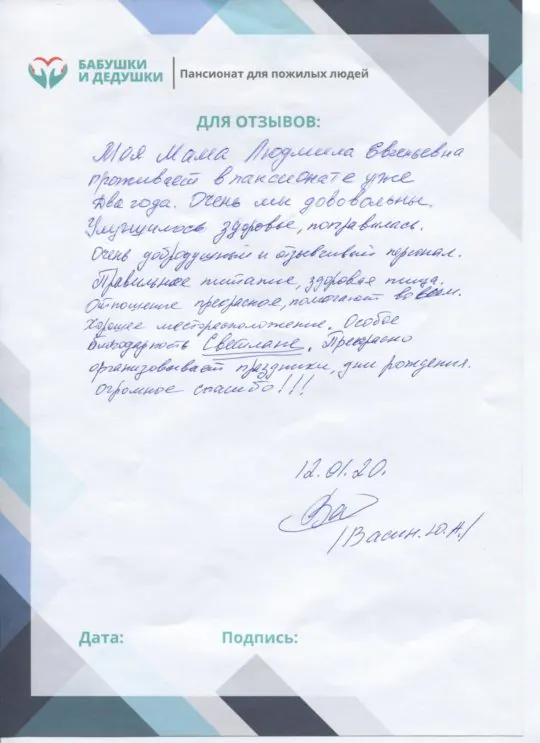 БАБУШКИ
И ДЕДУШКИ
Пансионат для пожилых людей
ДЛЯ ОТЗЫВОВ:
Моя Мама Людмила Евгеньевна
проживает в пансионате уже
два года. Очень мы довольны.
Улучшилось здоровье, поправилась.
Очень добродушный и отзывчивый персонал.
Правильное питание, здоровая пища.
Отношение прекрасное, помогают во всем.
Хорошее месторасположение. Особое
благодарность Светлане. Прекрасно
организовывает праздники, дни рождения.
Огромное спасибо!!!
12.01.20.
/Васин.Ю.А./
Дата:
Подпись: